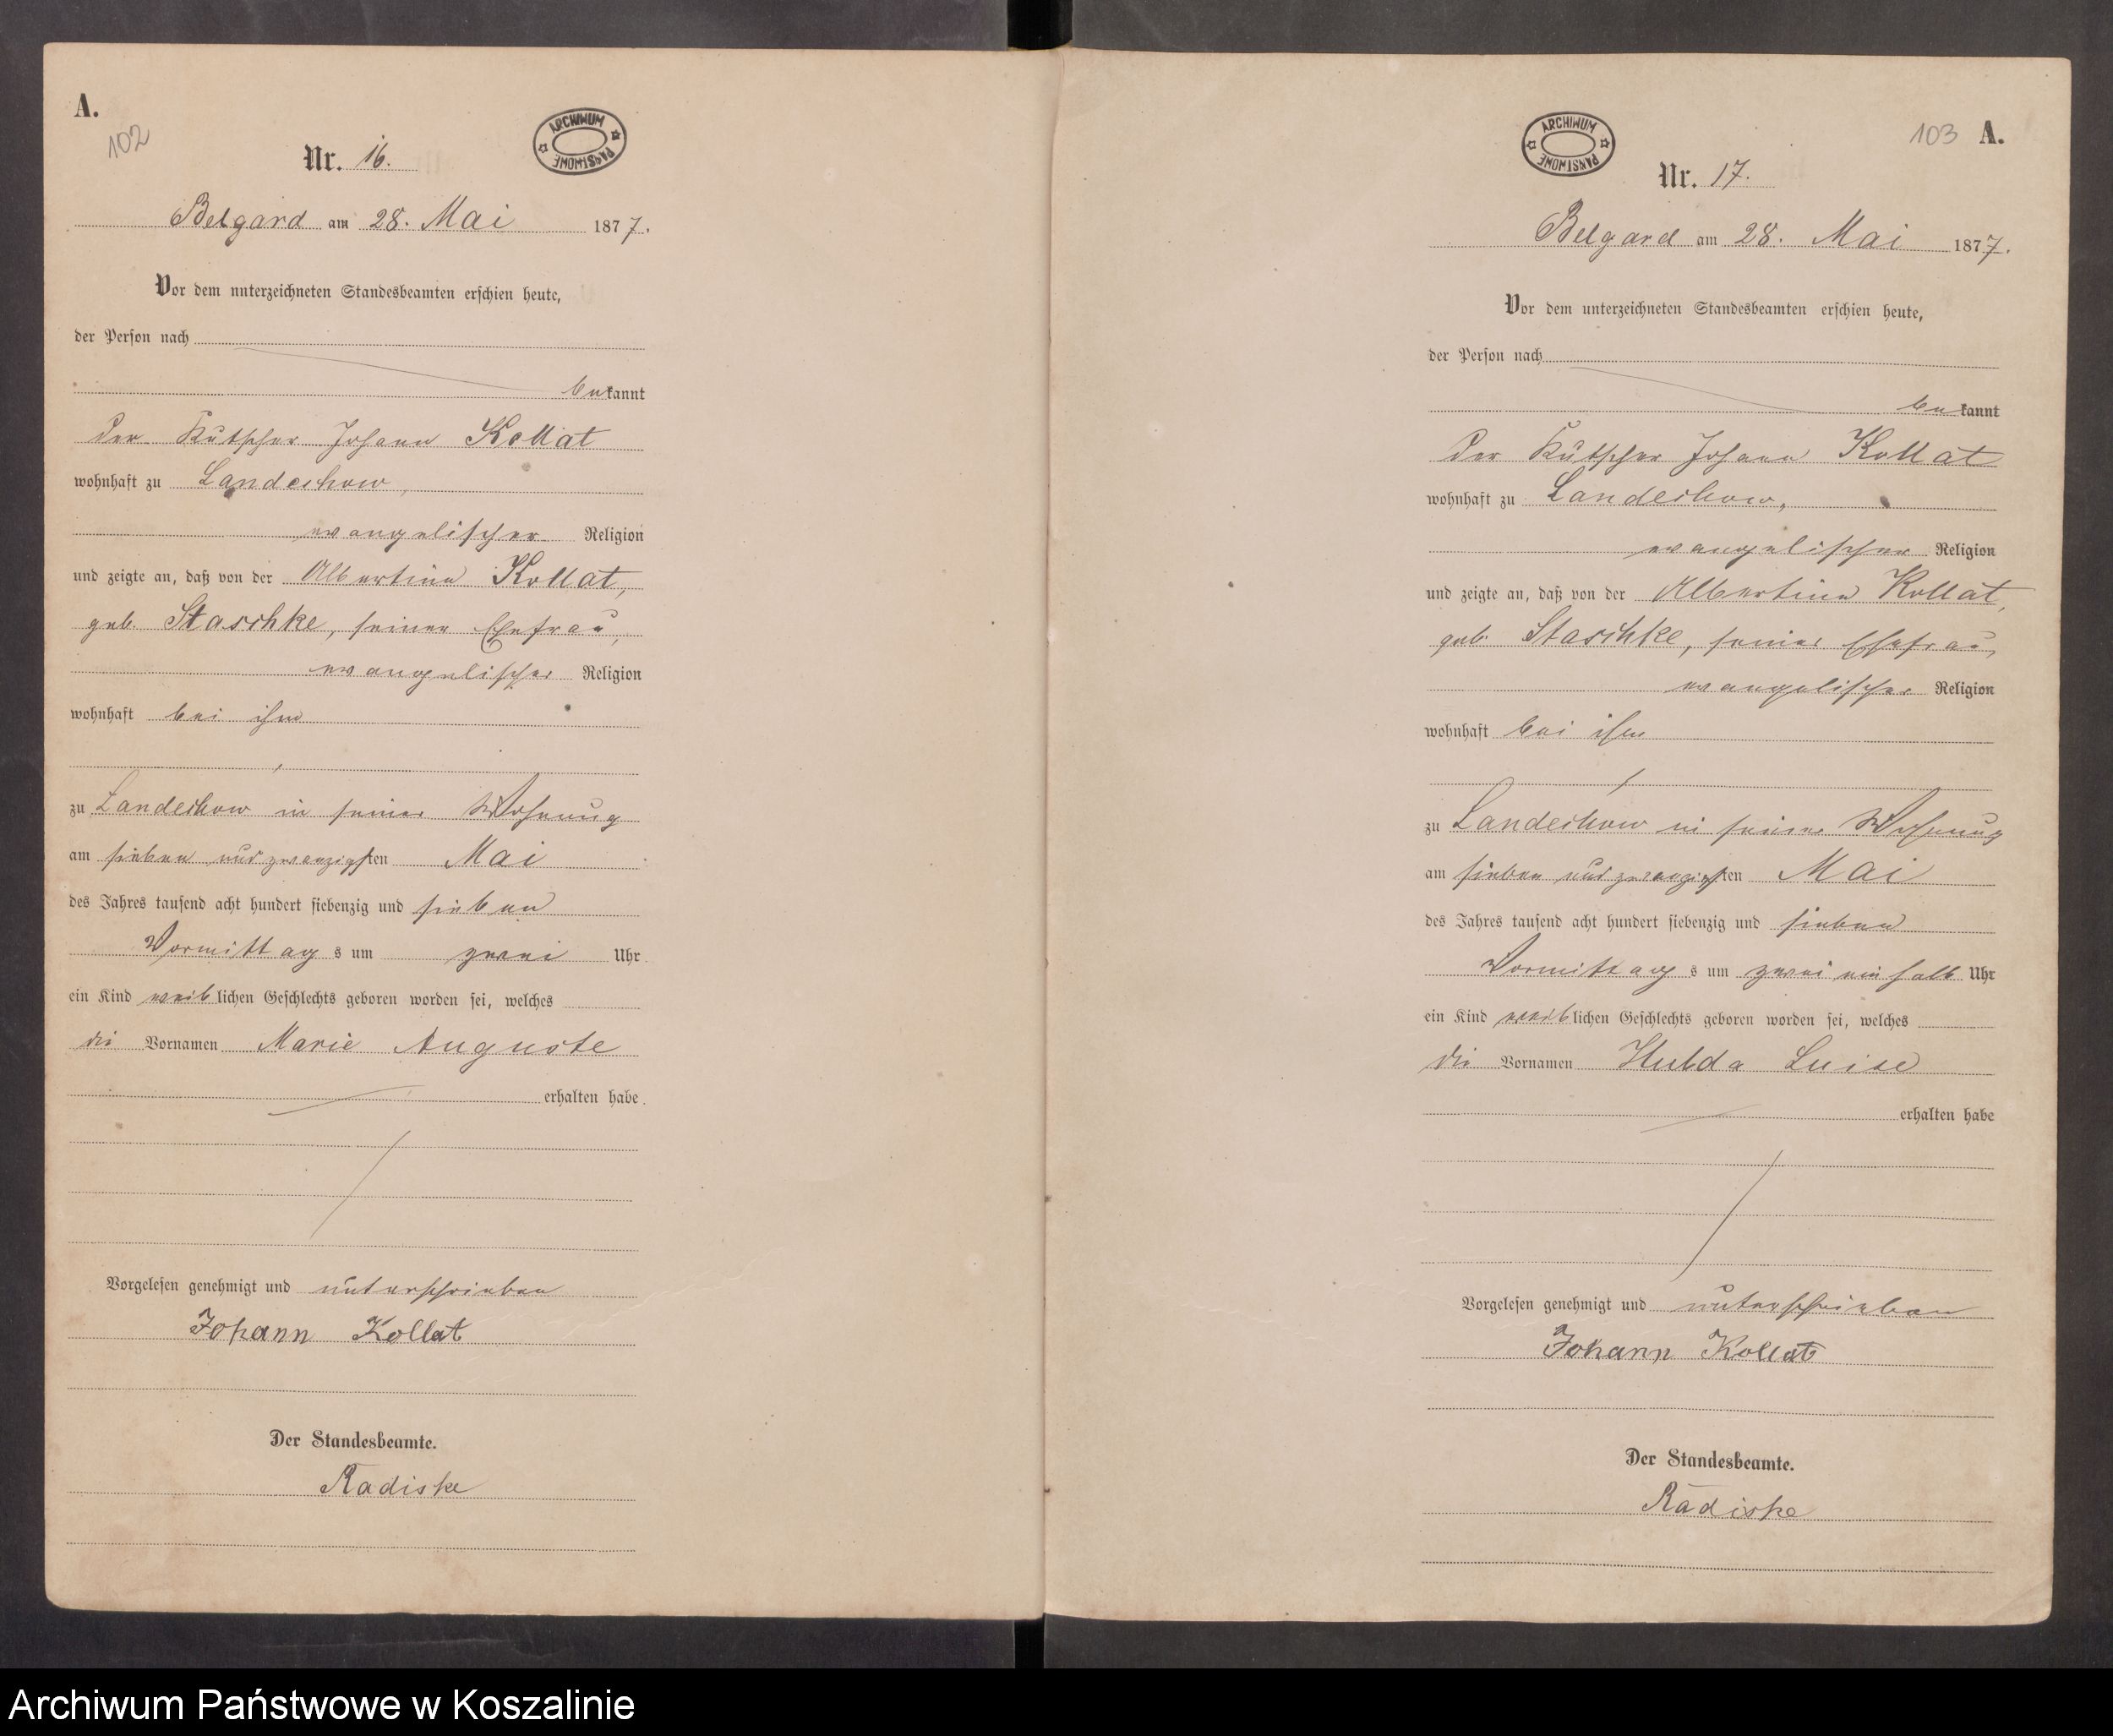 A.
102
ARCHIWUM PAŃSTWOWE
Nr. 16.
Belgard am 28. Mai 1877.
Vor dem unterzeichneten Standesbeamten erschien heute,
der Person nach
bekannt
der Kutscher Johann Kollat
wohnhaft zu Landechow,
evangelischer Religion
und zeigte an, daß von der Albertine Kollat,
geb. Staschke, seiner Ehefrau,
evangelischer Religion
wohnhaft bei ihm
zu Landechow in seiner Wohnung
am sieben und zwanzigsten Mai
des Jahres tausend acht hundert siebenzig und sieben
Vormittags um zwei Uhr
ein Kind weiblichen Geschlechts geboren worden sei, welches
die Vornamen Marie Auguste
erhalten habe.
Vorgelesen genehmigt und unterschrieben
Johann Kollat
Der Standesbeamte.
Radiske
ARCHIWUM PAŃSTWOWE
103 A.
Nr. 17.
Belgard am 28. Mai 1877.
Vor dem unterzeichneten Standesbeamten erschien heute,
der Person nach
bekannt
der Kutscher Johann Kollat
wohnhaft zu Landechow,
evangelischer Religion
und zeigte an, daß von der Albertine Kollat,
geb. Staschke, seiner Ehefrau,
evangelischer Religion
wohnhaft bei ihm
zu Landechow in seiner Wohnung
am sieben und zwanzigsten Mai
des Jahres tausend acht hundert siebenzig und sieben
Vormittags um zwei ein halb Uhr
ein Kind weiblichen Geschlechts geboren worden sei, welches
die Vornamen Hulda Luise
erhalten habe
Vorgelesen genehmigt und unterschrieben
Johann Kollat
Der Standesbeamte.
Radiske
Archiwum Państwowe w Koszalinie